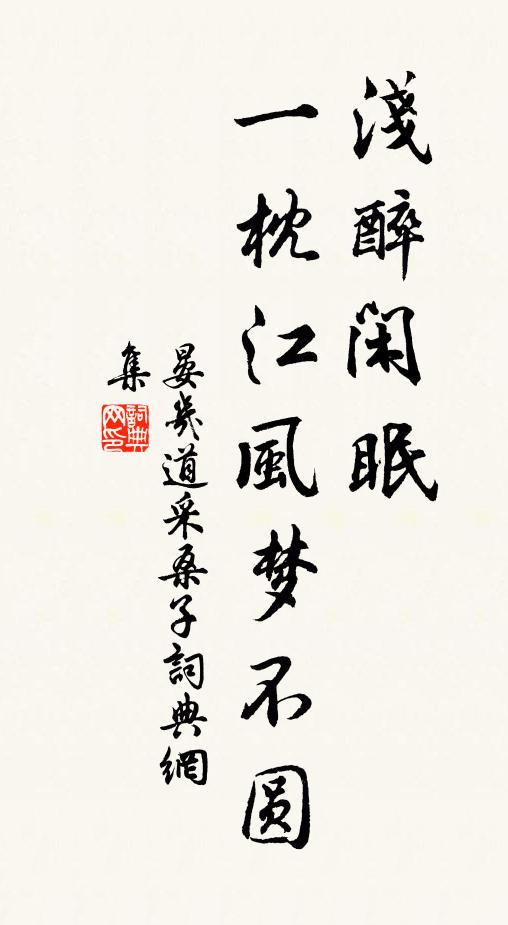 淺醉闲眠
一枕江風梦不圆
晏幾道采桑子詞典網
集
詞典
网印